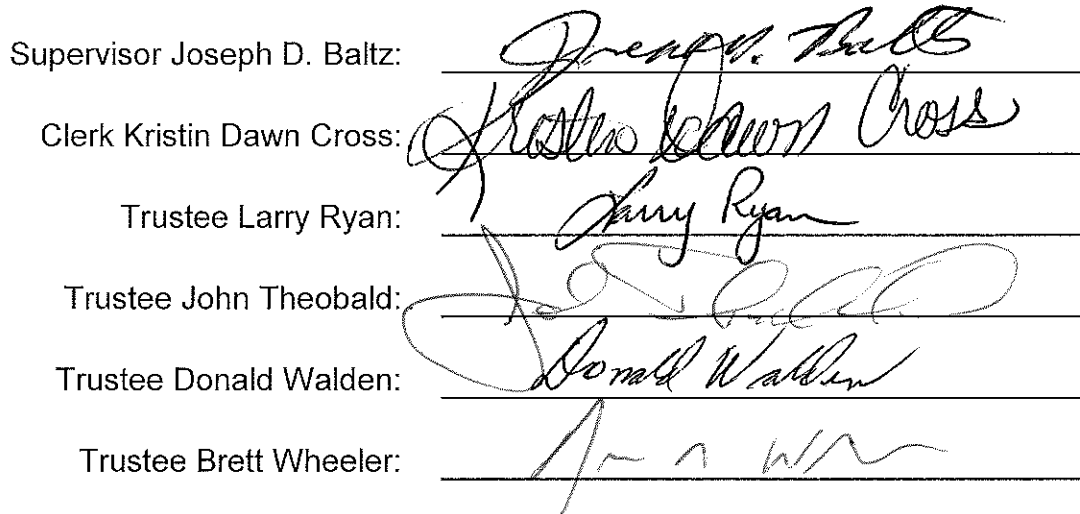 Supervisor Joseph D. Baltz:
Clerk Kristin Dawn Cross: Kristin Dawn Cross
Trustee Larry Ryan: Larry Ryan
Trustee John Theobald:
Trustee Donald Walden: Donald Walden
Trustee Brett Wheeler: